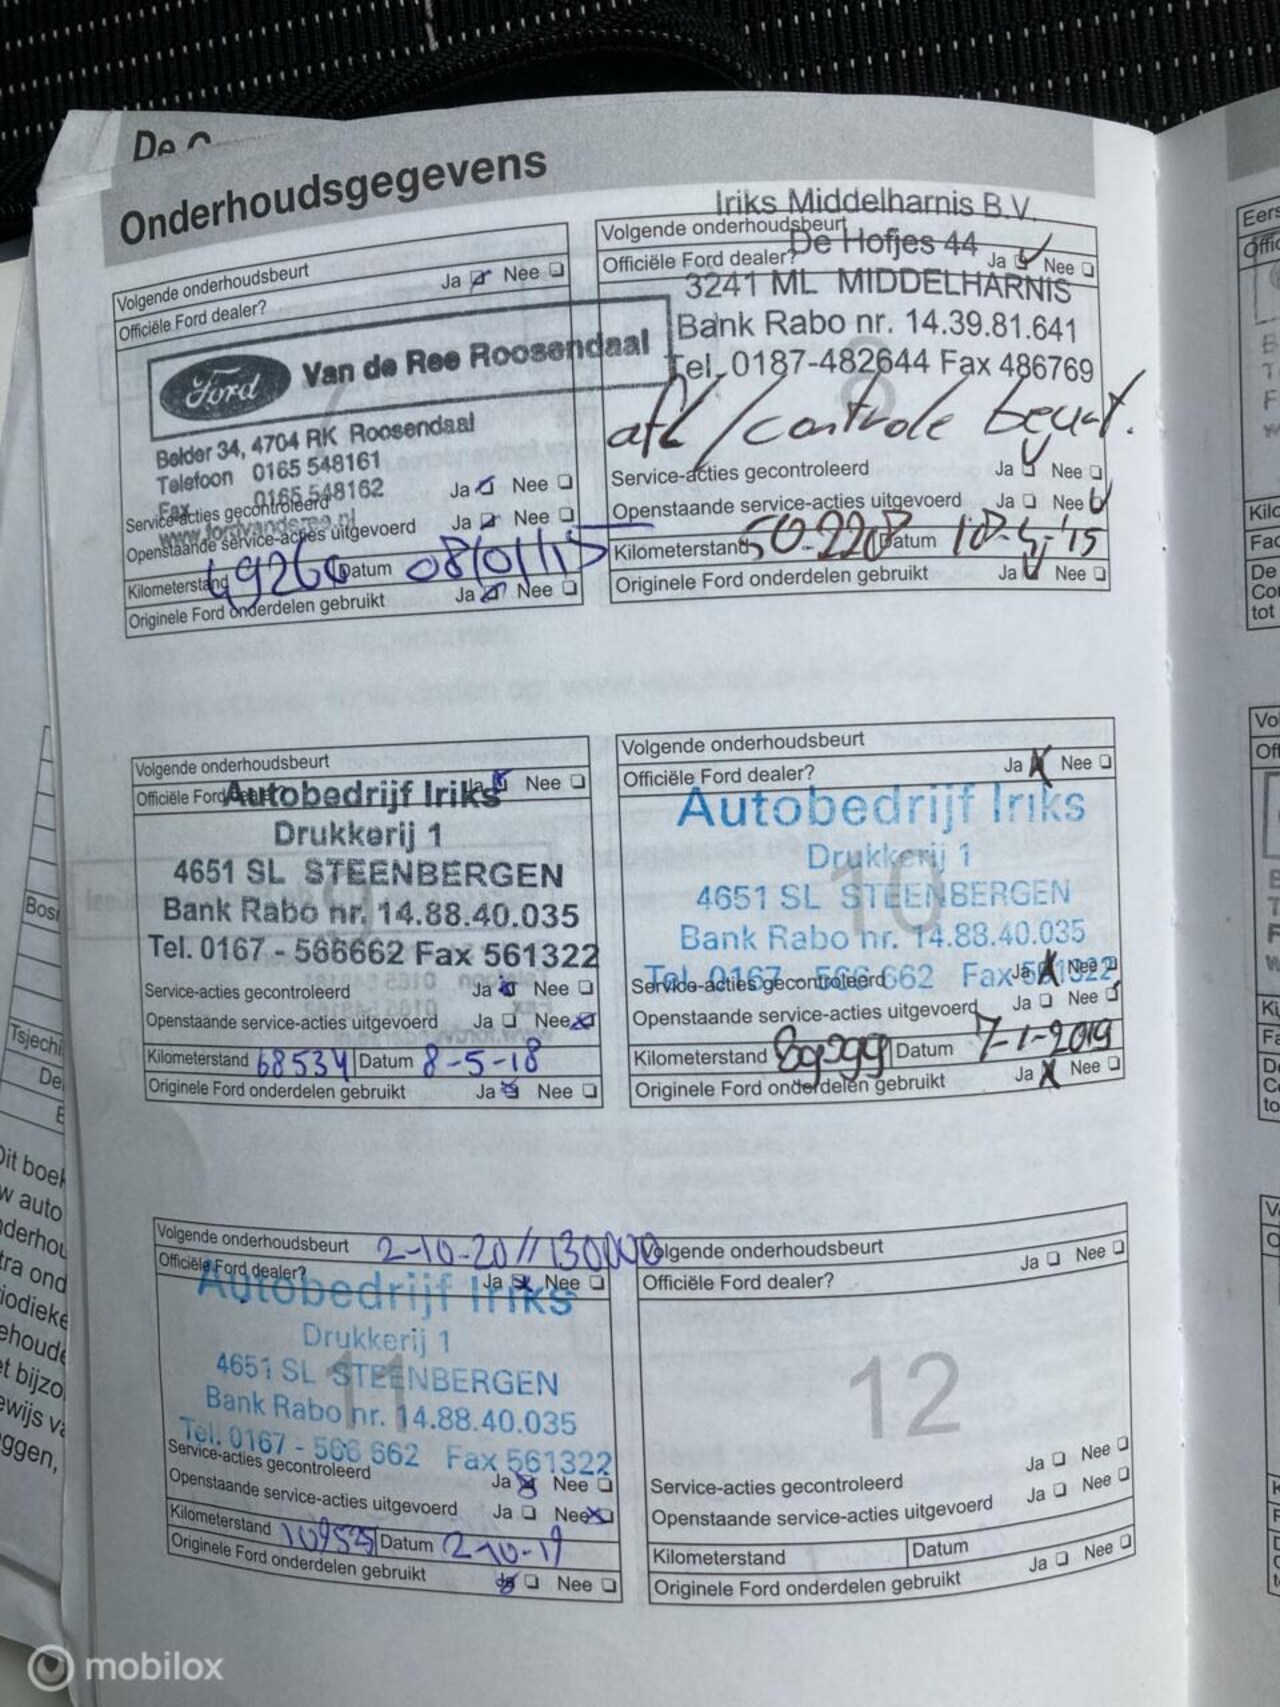 De
Onderhoudsgegevens
Volgende onderhoudsbeurt
Officiële Ford dealer? Ja Nee
Ford Van de Ree Roosendaal
Belder 34, 4704 RK Roosendaal
Telefoon 0165 548161
Fax 0165 548162
www.fordvanderee.nl
Service-acties gecontroleerd Ja Nee
Openstaande service-acties uitgevoerd Ja Nee
Kilometerstand Datum 08/01/15
Originele Ford onderdelen gebruikt Ja Nee
Iriks Middelharnis B.V.
Volgende onderhoudsbeurt
De Hofjes 44
Officiële Ford dealer? Ja Nee
3241 ML MIDDELHARNIS
Bank Rabo nr. 14.39.81.641
Tel. 0187-482644 Fax 486769
8
afl/controle beurt.
Service-acties gecontroleerd Ja Nee
Openstaande service-acties uitgevoerd Ja Nee
Kilometerstand Datum
Originele Ford onderdelen gebruikt Ja Nee
Volgende onderhoudsbeurt
Officiële Ford dealer? Ja Nee
Autobedrijf Iriks
Drukkerij 1
4651 SL STEENBERGEN
Bank Rabo nr. 14.88.40.035
Tel. 0167 - 566662 Fax 561322
9
Service-acties gecontroleerd Ja Nee
Openstaande service-acties uitgevoerd Ja Nee
Kilometerstand 68534 Datum 8-5-18
Originele Ford onderdelen gebruikt Ja Nee
Volgende onderhoudsbeurt
Officiële Ford dealer? Ja Nee
Autobedrijf Iriks
Drukkerij 1
10
4651 SL STEENBERGEN
Bank Rabo nr. 14.88.40.035
Tel. 0167 - 566 662 Fax 561322
Service-acties gecontroleerd Ja Nee
Openstaande service-acties uitgevoerd Ja Nee
Kilometerstand Datum 7-1-2019
Originele Ford onderdelen gebruikt Ja Nee
Volgende onderhoudsbeurt 2-10-20//130000
Officiële Ford dealer? Ja Nee
Autobedrijf Iriks
Drukkerij 1
4651 SL STEENBERGEN
11
Bank Rabo nr. 14.88.40.035
Tel. 0167 - 566 662 Fax 561322
Service-acties gecontroleerd Ja Nee
Openstaande service-acties uitgevoerd Ja Nee
Kilometerstand 109525 Datum 2-10-19
Originele Ford onderdelen gebruikt Ja Nee
Volgende onderhoudsbeurt
Officiële Ford dealer? Ja Nee
12
Service-acties gecontroleerd Ja Nee
Openstaande service-acties uitgevoerd Ja Nee
Kilometerstand Datum
Originele Ford onderdelen gebruikt Ja Nee
mobilox